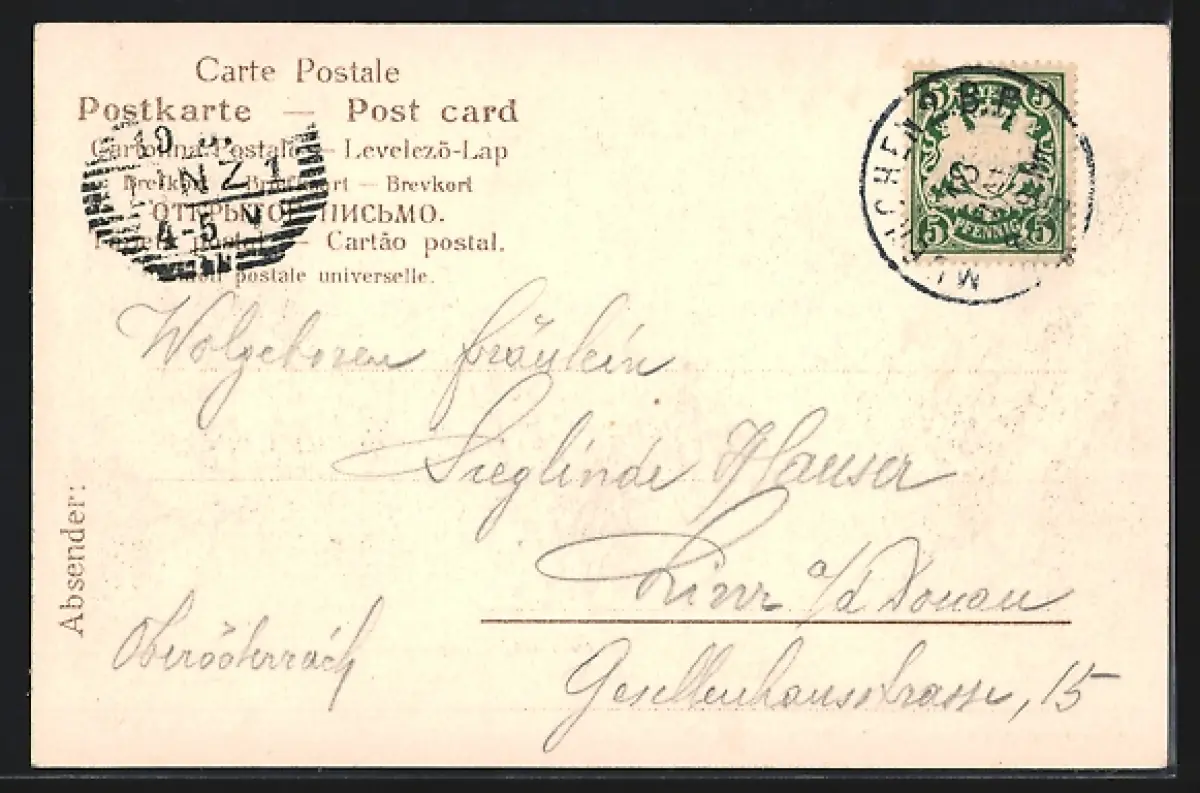 Carte Postale
Postkarte — Post card
Cartolina Postale — Levelező-Lap
Brefkort — Briefkaart — Brevkort
ОТКРЫТОЕ ПИСЬМО.
Tarjeta postal — Cartão postal.
Union postale universelle.
19
LINZ 1
4-5 N
MÜNCHEN 2 B.P.
5 5
BAYERN
5 PFENNIG 5
Wolgeboren Fräulein
Sieglinde Hauser
Linz a/d Donau
Gesellenhausstrasse, 15
Oberösterreich
Absender: